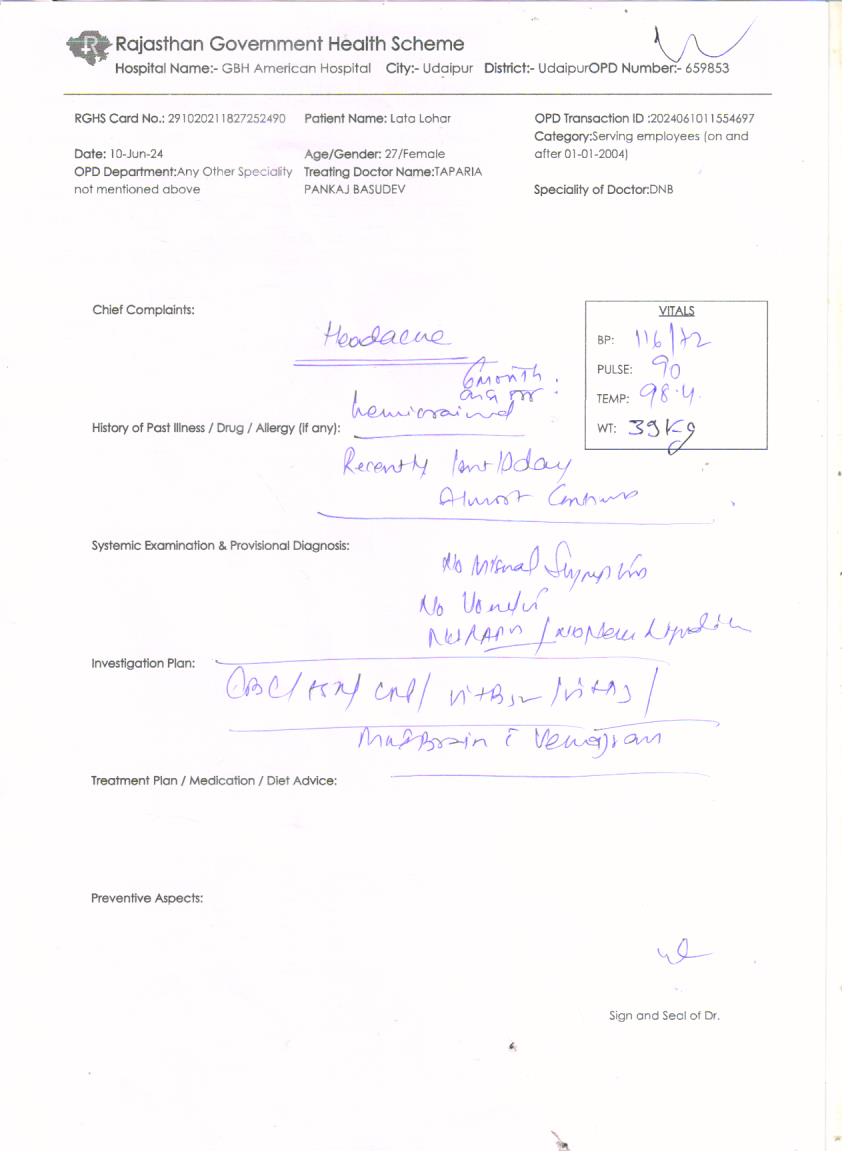 Rajasthan Government Health Scheme
Hospital Name:- GBH American Hospital City:- Udaipur District:- UdaipurOPD Number:- 659853
RGHS Card No.: 291020211827252490 Patient Name: Lata Lohar OPD Transaction ID :2024061011554697
Category:Serving employees (on and
Date: 10-Jun-24 Age/Gender: 27/Female after 01-01-2004)
OPD Department:Any Other Speciality Treating Doctor Name:TAPARIA
not mentioned above PANKAJ BASUDEV Speciality of Doctor:DNB
Chief Complaints:
VITALS
Headache
BP: 116/72
PULSE: 90
6month
TEMP: 98.4
WT: 39Kg
History of Past Illness / Drug / Allergy (if any):
Recently last 10day
Almost
Systemic Examination & Provisional Diagnosis:
No
No
Investigation Plan:
CBC/ / / Vit B12 /Vit D3 /
Brain c Venogram
Treatment Plan / Medication / Diet Advice:
Preventive Aspects:
Sign and Seal of Dr.